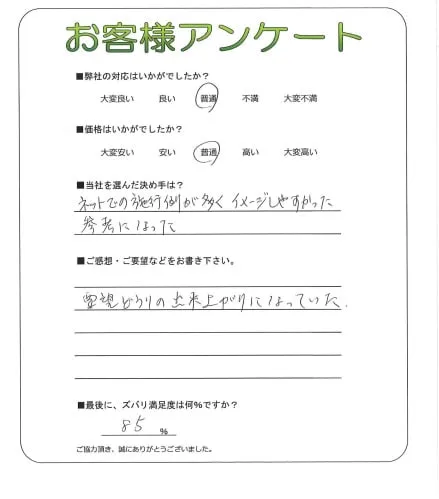 お客様アンケート
■弊社の対応はいかがでしたか？
大変良い 良い 普通 不満 大変不満
■価格はいかがでしたか？
大変安い 安い 普通 高い 大変高い
■当社を選んだ決め手は？
ネットでの施行例が多く イメージしやすかった
参考になった
■ご感想・ご要望などをお書き下さい。
要望どうりの出来上がりになっていた.
■最後に、ズバリ満足度は何％ですか？
85 %
ご協力頂き、誠にありがとうございました。